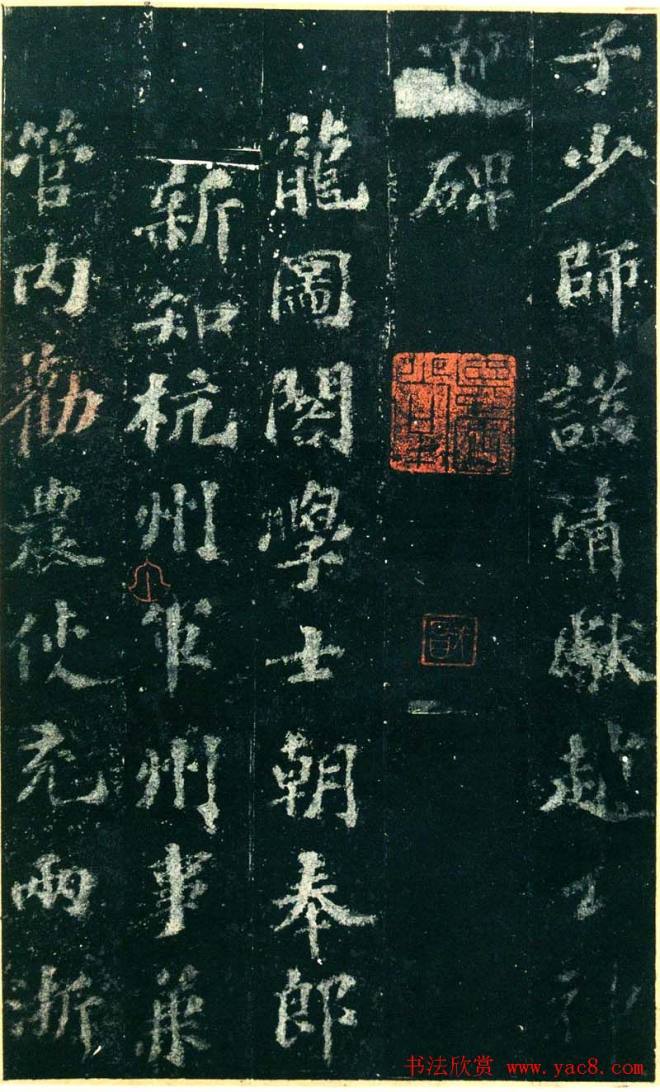 子少師謚清獻趙公神
道碑
龍圖閣學士朝奉郎
新知杭州軍州事兼
管内勸農使充兩浙
书法欣赏 www.yac8.com